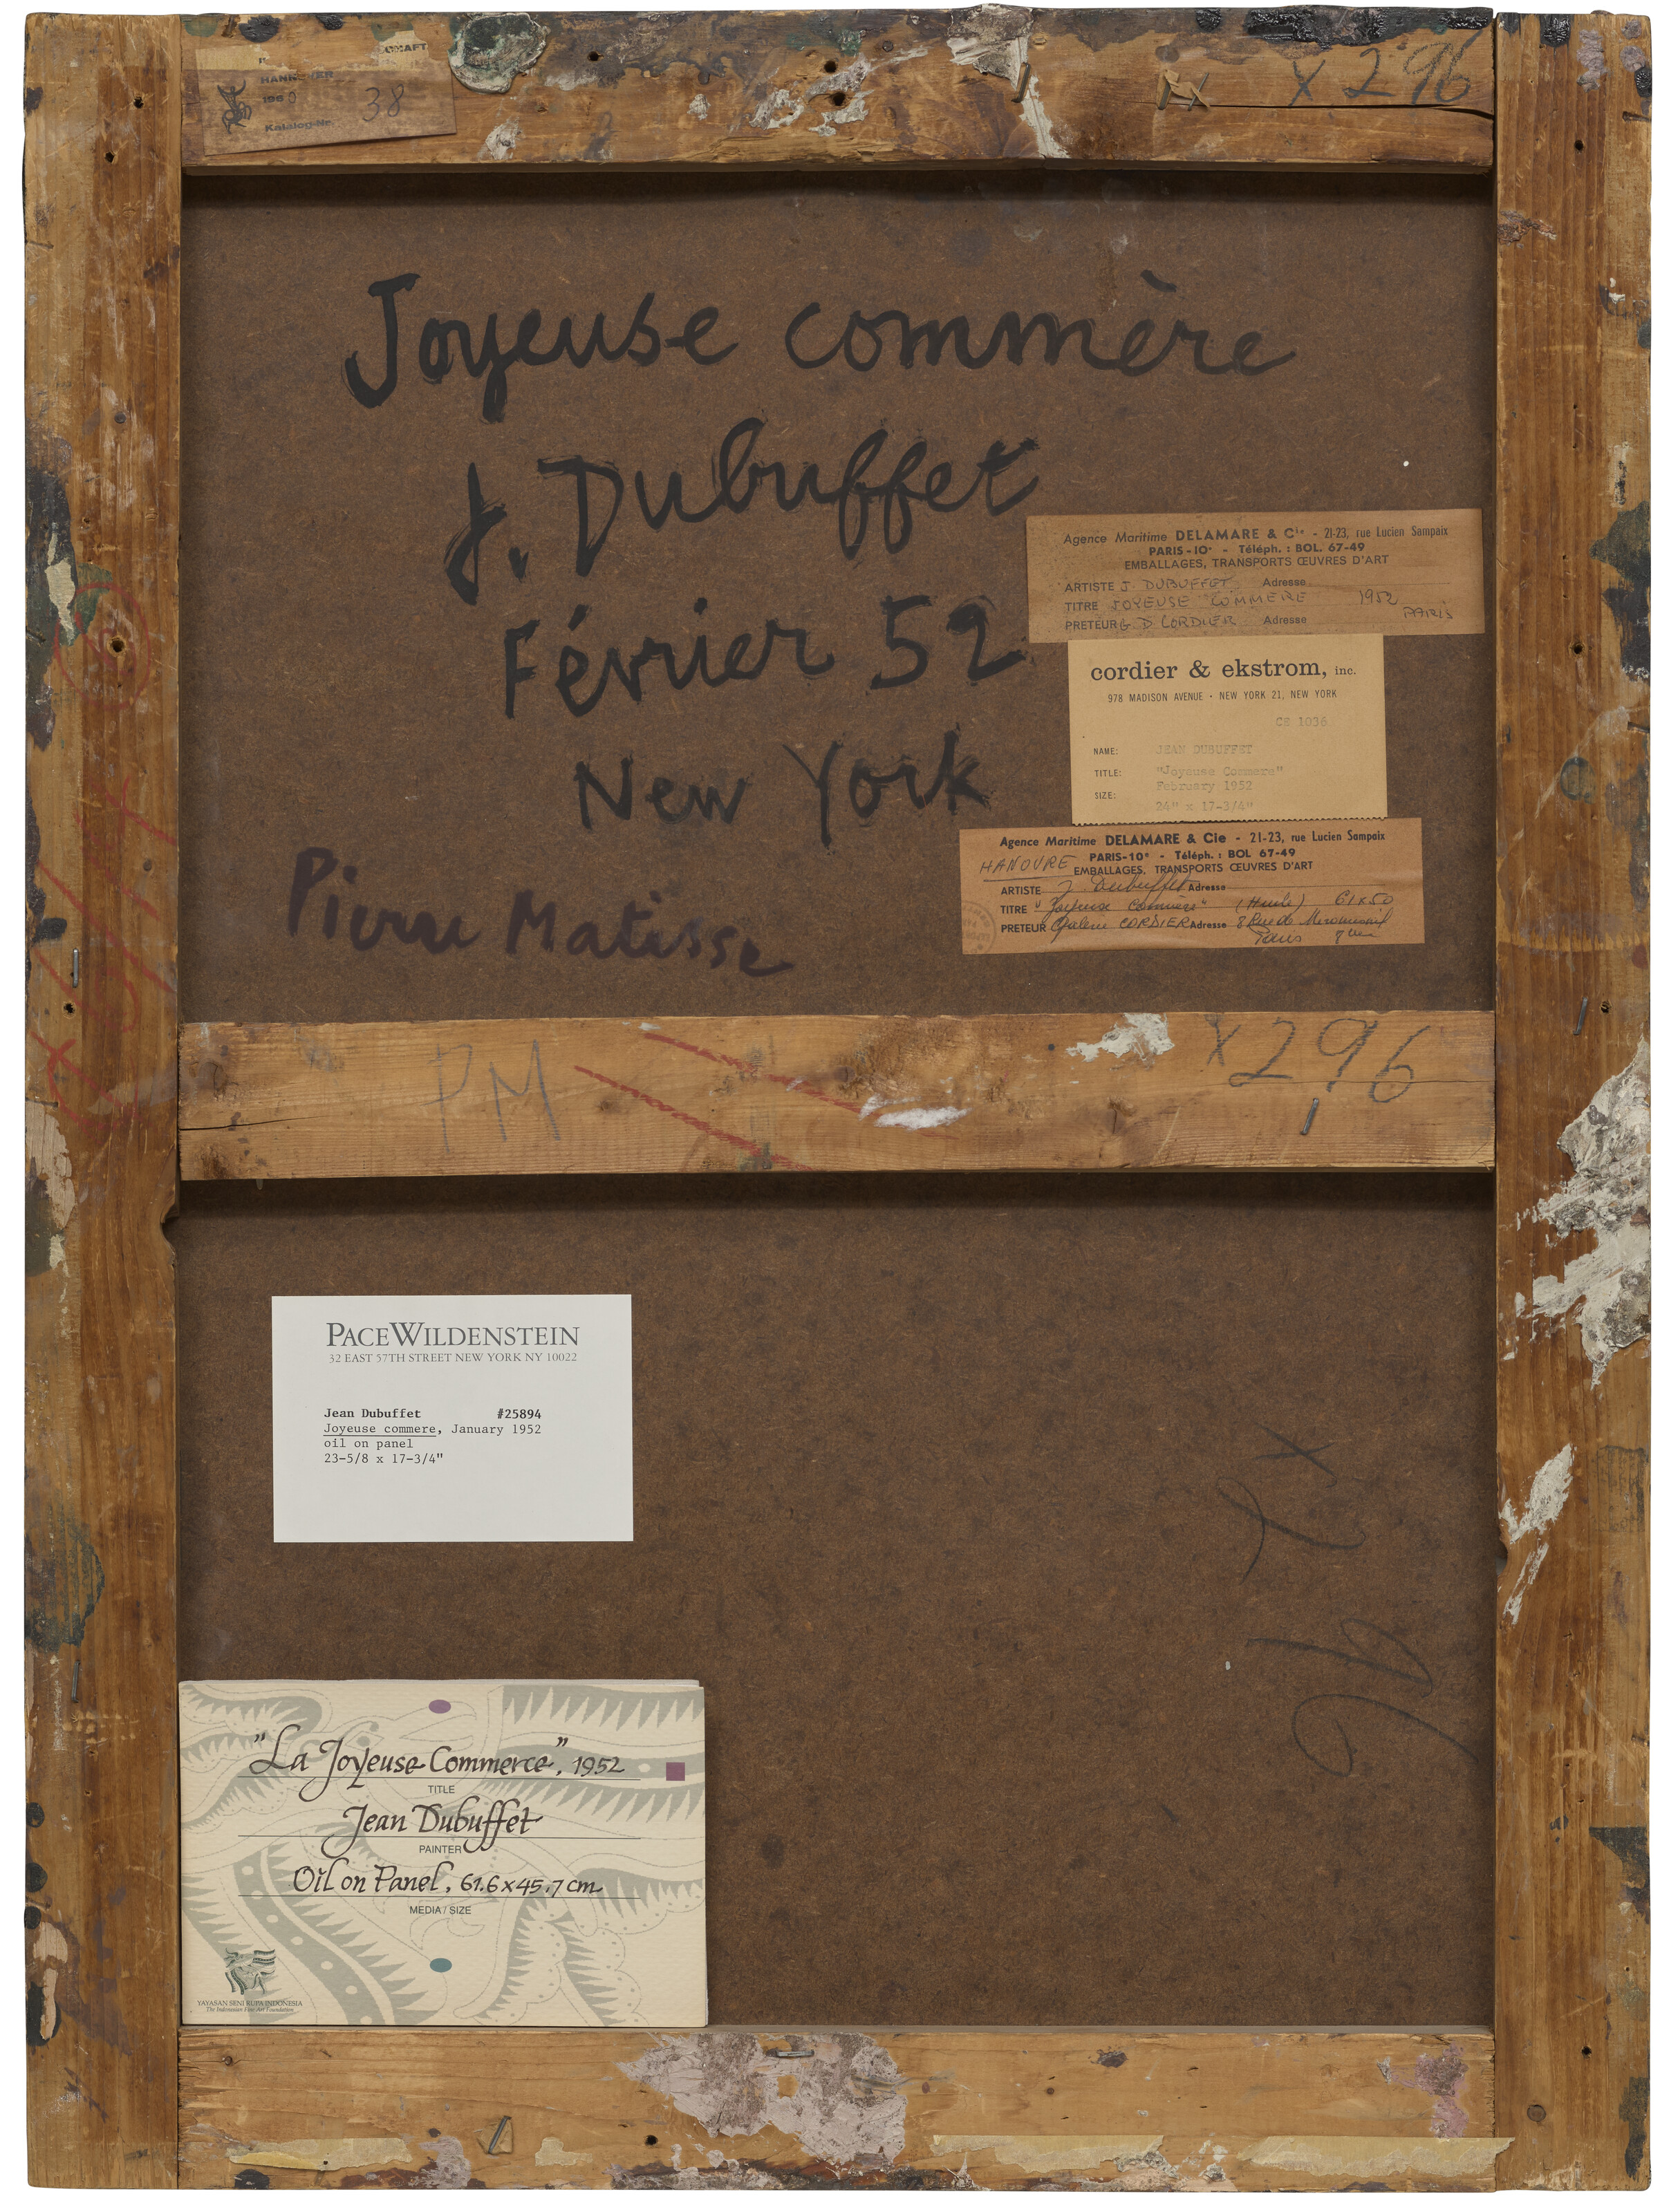 CRAFT
HANNOVER
1960
Katalog-Nr. 38
X 296
Joyeuse commère
J. Dubuffet
Février 52
New York
Pierre Matisse
Agence Maritime DELAMARE & Cie - 21-23, rue Lucien Sampaix
PARIS-10e - Téléph. : BOL. 67-49
EMBALLAGES, TRANSPORTS ŒUVRES D'ART
ARTISTE J. DUBUFFET Adresse
TITRE JOYEUSE COMMERE 1952
PRETEUR G. D. CORDIER Adresse PARIS
cordier & ekstrom, inc.
978 MADISON AVENUE - NEW YORK 21, NEW YORK
CE 1036
NAME: JEAN DUBUFFET
TITLE: "Joyeuse Commere"
February 1952
SIZE: 24" x 17-3/4"
Agence Maritime DELAMARE & Cie - 21-23, rue Lucien Sampaix
HANOVRE PARIS-10e - Téléph. : BOL 67-49
EMBALLAGES, TRANSPORTS ŒUVRES D'ART
ARTISTE J. Dubuffet Adresse
TITRE "Joyeuse Commère" (Huile) 61x50
PRETEUR Galerie CORDIER Adresse 8 Rue de Miromesnil
Paris 8eme
PM
X 296
PACEWILDENSTEIN
32 EAST 57TH STREET NEW YORK NY 10022
Jean Dubuffet #25894
Joyeuse commere, January 1952
oil on panel
23-5/8 x 17-3/4"
X 296
"La Joyeuse Commerce", 1952
TITLE
Jean Dubuffet
PAINTER
Oil on Panel, 61.6 x 45.7 cm
MEDIA / SIZE
YAYASAN SENI RUPA INDONESIA
The Indonesian Fine Art Foundation